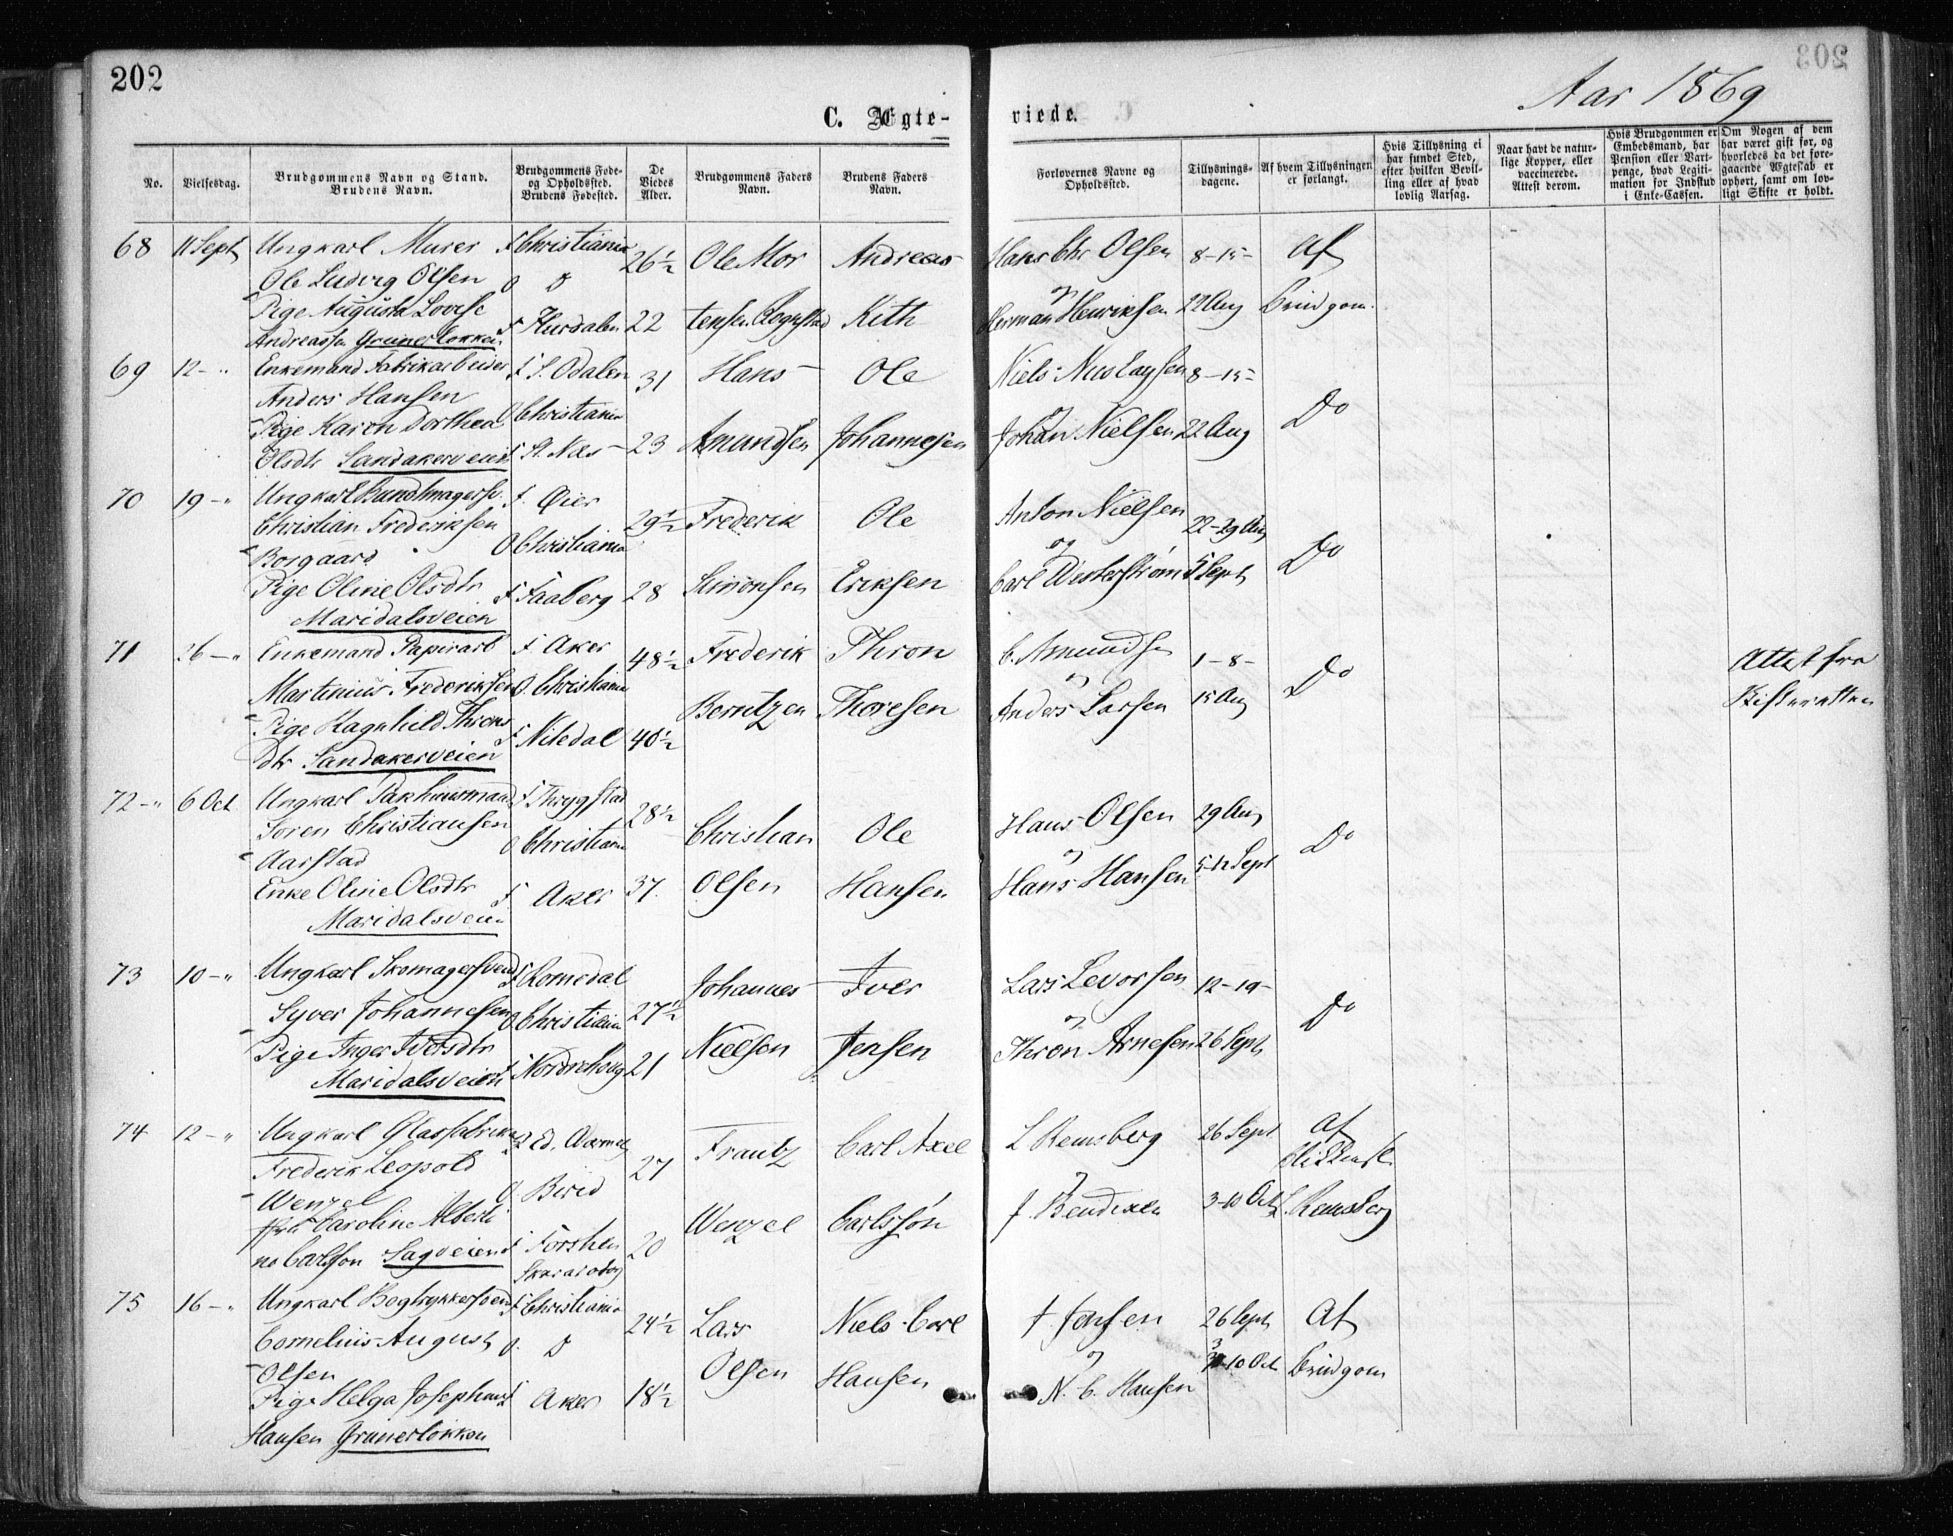 202
Aar 1869
C. Ægte-
viede.
No.
Vielsesdag.
Brudgommens Navn og Stand.
Brudens Navn.
Brudgommens Føde-
og Opholdssted.
Brudens Fødested.
De
Viedes
Alder.
Brudgommens Faders
Navn.
Brudens Faders
Navn.
Forlovernes Navne og
Opholdssted.
Tillysnings-
dagene.
Af hvem Tillysningen
er forlangt.
Hvis Tillysning ei
har fundet Sted,
efter hvilken Bevil-
ling eller af hvad
lovlig Aarsag.
Naar havt de natur-
lige Kopper, eller
vaccinerede.
Attest derom.
Hvis Brudgommen er
Embedsmand, har
Pension eller Vart-
penge, hvad Legiti-
mation for Indskud
i Enke-Cassen.
Om Nogen af dem
har været gift før, og
hvorledes da det fore-
gaaende Ægteskab er
ophørt, samt om lov-
ligt Skifte er holdt.
68 11 Sept Ungkarl Murer F Christiania 26½ Ole Mor Andreas Hans Chr Olsen 8-15- Af
Ole Ludvig Olsen O D
Pige Augusta Lovise og
Andreassen Grünerløkken F Hurdalen 22 tensen Kith Herman Henriksen 22 Aug Brudgom.
69 12 - " Enkemand Fabrikarbeider F S. Odalen 31 Hans Ole Niels 8-15- Do
Anders Hansen O Christiania
Pige Karen Dorthea og
Olsdtr Sandakerveien F N. Næs 23 Amundsen Johannesen Johan Nielsen 22 Aug
70 19 - " Ungkarl Bundtmagersv. F. Øier 29½ Frederik Ole Anton Nielsen 22-29 Aug Do
Christian Frederiksen O Christiania
Borgaard og
Pige Oline Olsdtr F Faaberg 28 Simonsen Eriksen Carl Westerstrøm 5 Sept
Maridalsveien
71 26 - " Enkemand Papirarb F Aker 48½ Frederik Thron C. Amundsen 1-8- Do Attest fra
Martinius Frederiksen O. Christiania og
Pige Ragnhild Throns F Nitedal 40½ Berntzen Thoresen Anders Larsen 15 Aug Skifteretten
dtr Sandakerveien
72 - " 6 Oct Ungkarl Pakhuusmand F Thrygstad 28½ Christian Ole Hans Olsen 29 Aug Do
Søren Christiansen O Christiania
Aarstad og
Enke Oline Olsdtr F Aker 37. Olsen Hansen Hans Hansen 5-12 Sept
Maridalsveien
73 10 - " Ungkarl Skomagersvend F Romedal 27½ Johannes Iver Lars Levorsen 12-19- Do
Syver Johannesen O Christiania
Pige Inger Iversdtr F Norderhoug 21 Nielsen Jensen og Thron Arnesen 26 Sept
Maridalsveien
74 12 - " Ungkarl Glasfabrika 27 Frantz Carl Axel L Remsberg 26 Sept Af
Frederik Leopold
Wenzel O. Birid og
Caroline Alberti Wenzel Carlssøn J. Bendixen 3-10 Oct L. Remsberg
ne Carlsson Sagveien F 20
75 16 - " Ungkarl Bogtrykkersvend F Christiania 24½ Lars Niels Carl Jensen 26 Sept Af
Cornelius August O. D
Olsen og 3-10 Oct Brudgom
Pige Helga Josephine F Aker 18½ Olsen Hansen N. C. Hansen
Hansen Grünerløkken